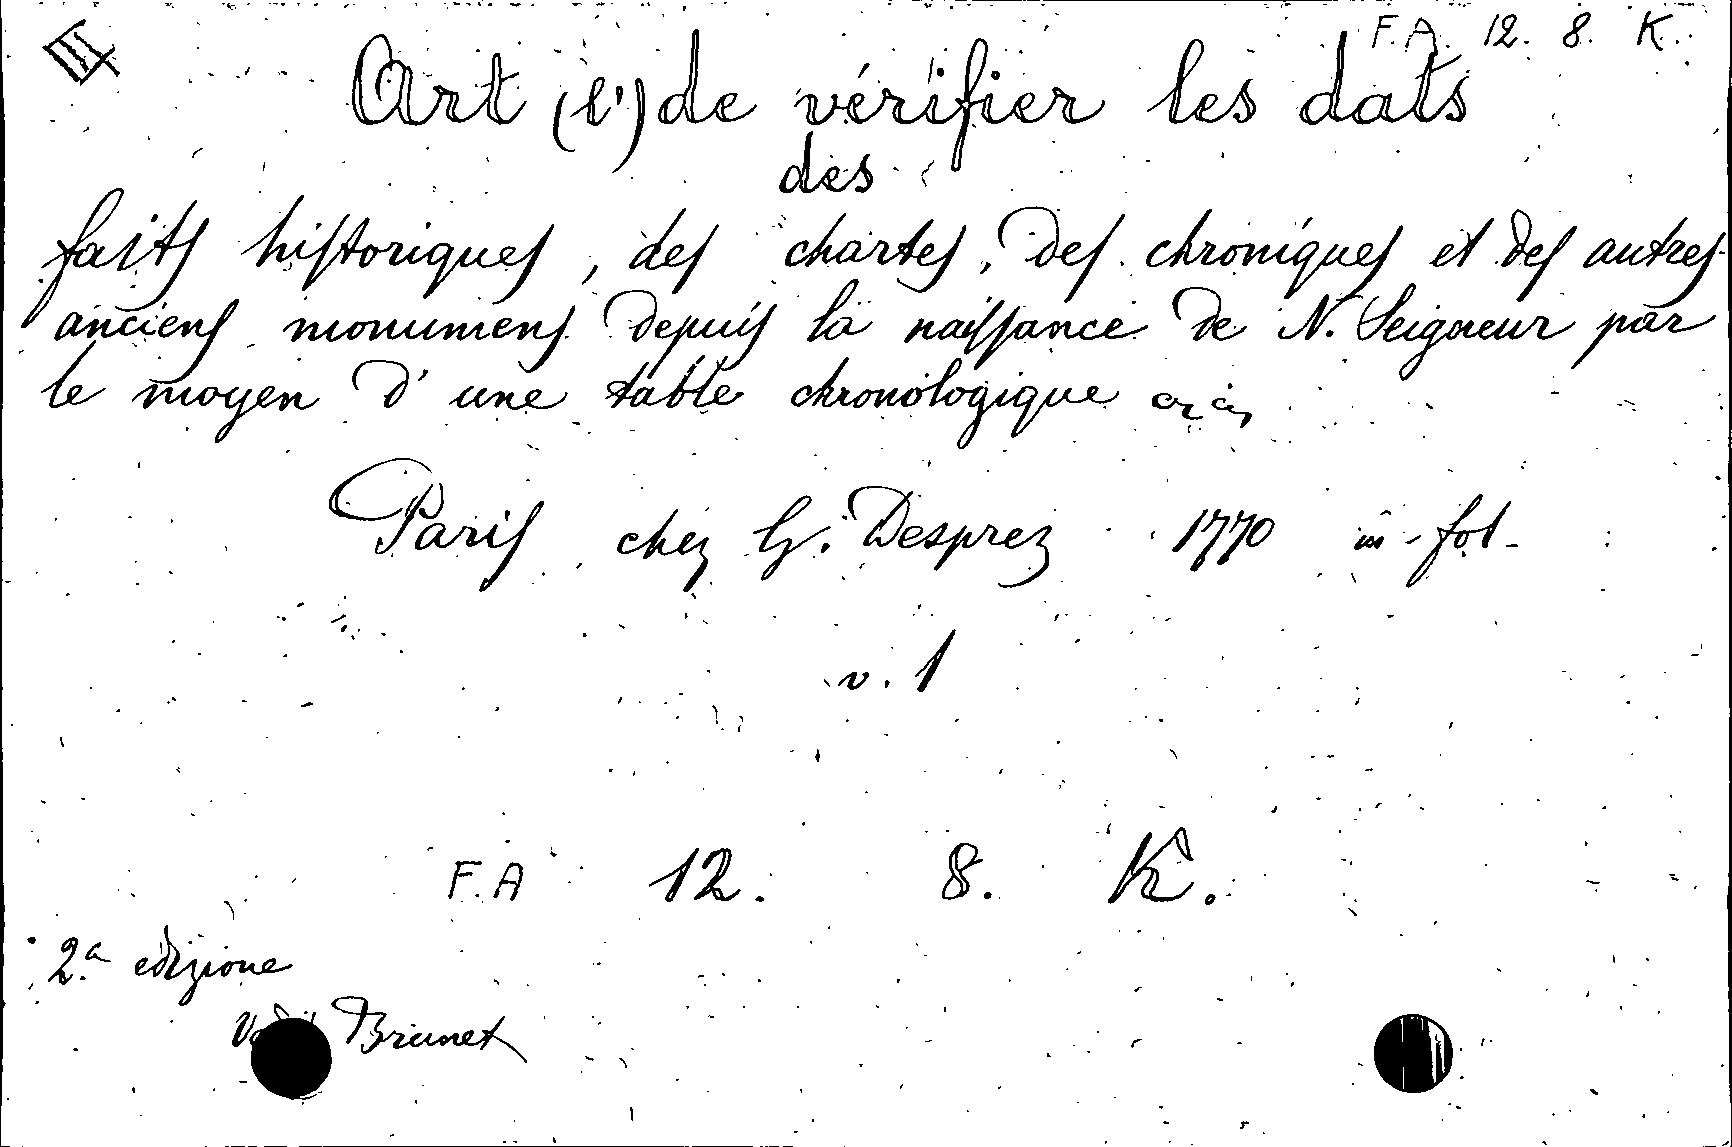 F.A. 12. 8. K.
Art (l') de vérifier les dats
des
faits historiques, des chartes, des chroniques et des autres
anciens monumens depuis la naissance de N. Seigneur par
le moyen d'une table chronologique
Paris chez G. Desprez 1770 in-fol-
v. 1
F.A 12. 8. K.
2.a edizione
Brunet